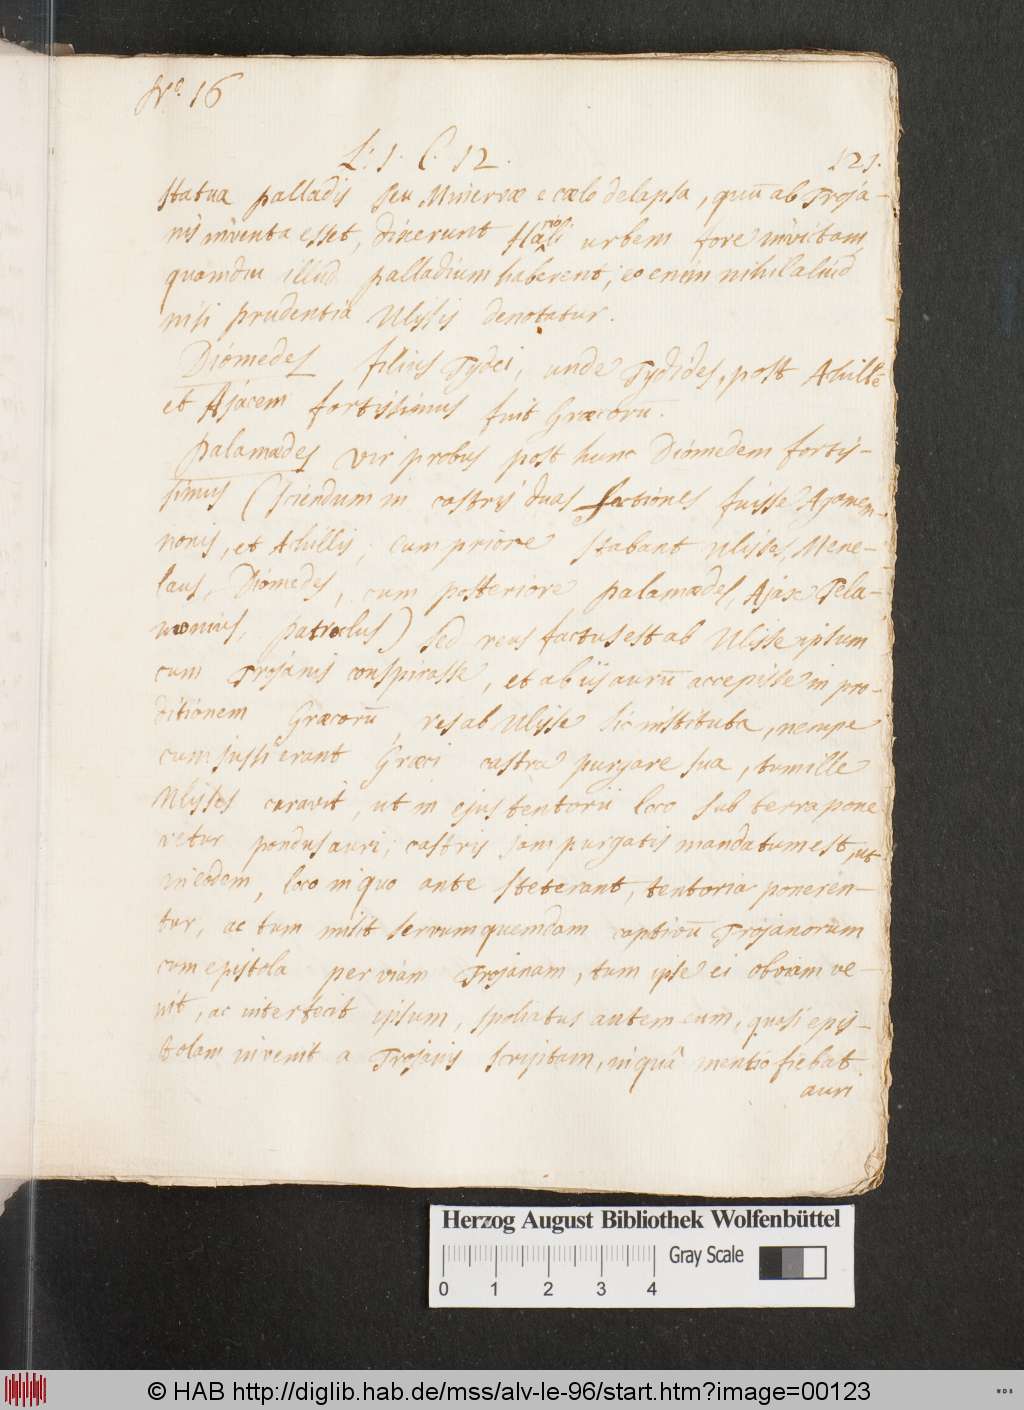 Nº. 16
L: 1. C. 12. 121.
statua palladis seu Minervæ e cælo delapsa, quū ab Troja-
nis inventa esset, dixerunt urbem fore invictam,
quamdiu illud palladium haberent; eo enim nihil aliud
nisi prudentia Ulysis denotatur.
Diomedes filius Tydei, unde Tydides, post Achillē
et Ajacem fortissimus fuit Græcorū.
Palamædes vir probus post hunc Diomedem fortis-
simus (sciendum in castris duas factiones fuisse Agamem-
nonis, et Achillis; cum priore stabant Ulisses, Mene-
laus, Diomedes, cum posteriore palamædes, Ajax Tela-
monius, patroclus) sed reus factus est ab Ulisse ipsum
cum Trojanis conspirasse, et ab iis aurū accepisse in pro-
ditionem Græcorū, res ab Ulysse sic instituta, nempe
cum jussi erant Græci castra purgare sua, tum ille
Ulysses curavit, ut in ejus tentorii loco sub terra pone
retur pondus auri; castris jam purgatis mandatum est, ut
in eodem, loco in quo ante steterant, tentoria poneren-
tur, ac tum misit servum quemdam captivū Trojanorum
cum epistola per viam Trojanam, tum ipse ei obviam ve-
nit, ac interfecit ipsum, spoliatus autem eum, quasi epis-
tolam invenit a Trojanis scriptam, in quâ mentio fiebat
auri
Herzog August Bibliothek Wolfenbüttel
Gray Scale
0 1 2 3 4
© HAB http://diglib.hab.de/mss/alv-le-96/start.htm?image=00123